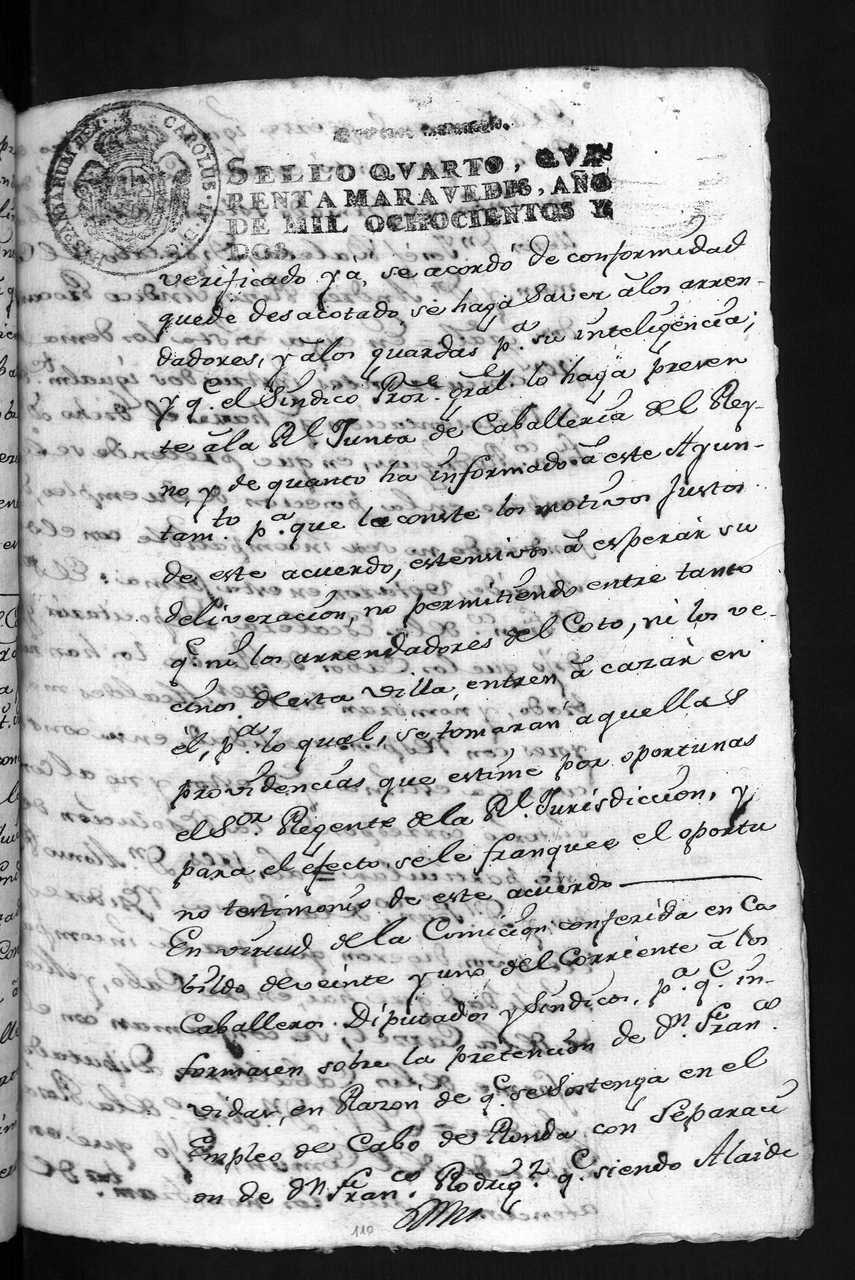 CAROLUS IV D G HISPANIARUM REX
SELLO QVARTO, QVA-
RENTA MARAVEDIS, AÑO
DE MIL OCHOCIENTOS Y
DOS.
verificado ya, se acordó de conformidad
quede desacotado, se haga Saver á los arren-
dadores, y á los guardas p.ª su inteligencia;
y q.e el Síndico Pror. gral. lo haga preven
te á la Rl. Junta de Caballería del Rey-
no, y de quanto ha informado á este Ayun-
tam.to p.ª que le conste los motivos justos
de este acuerdo, estensivos á esperar su
deliveración, no permitiendo entre tanto
q.e ni los arrendadores del Coto, ni los ve-
cinos de esta villa, entren á cazar en
él, p.ª lo qual, se tomarán aquellas
providencias que estime por oportunas
el Sor. Regente de la Rl. Jurisdicción, y
para el efecto se le franquee el oportu
no testimonio de este acuerdo
En virtud de la Comición conferida en Ca
bildo de veinte y uno del Corriente á los
Caballeros Diputados y Síndicos, p.ª q.e in-
formasen sobre la pretención de Dn. Fran.co
vidar, en Razon de q.e se Sostenga en el
Empleo de Cabo de Ronda con Separaci
on de Dn. Fran.co Rodrig.z q.e siendo Alcide
110